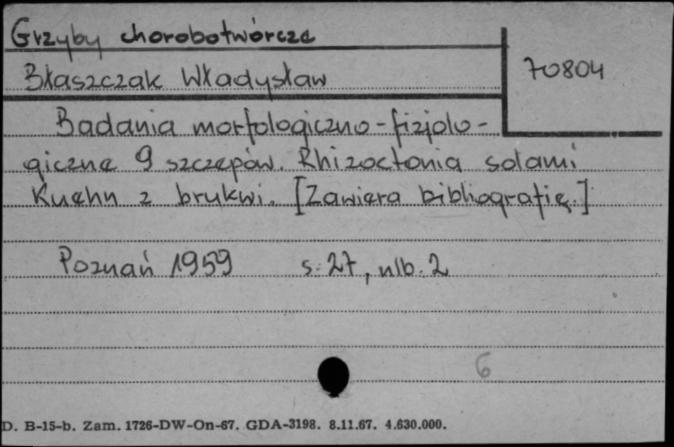 Grzyby chorobotwórcze
70804
Błaszczak Władysław
Badania morfologiczno-fizjolo-
giczne 9 szczepów. Rhizoctonia solami
Kuehn z brukwi. [Zawiera bibliografię.]
Poznań 1959 s. 27, nlb. 2
6
D. B-15-b. Zam. 1726-DW-On-67. GDA-3198. 8.11.67. 4.630.000.